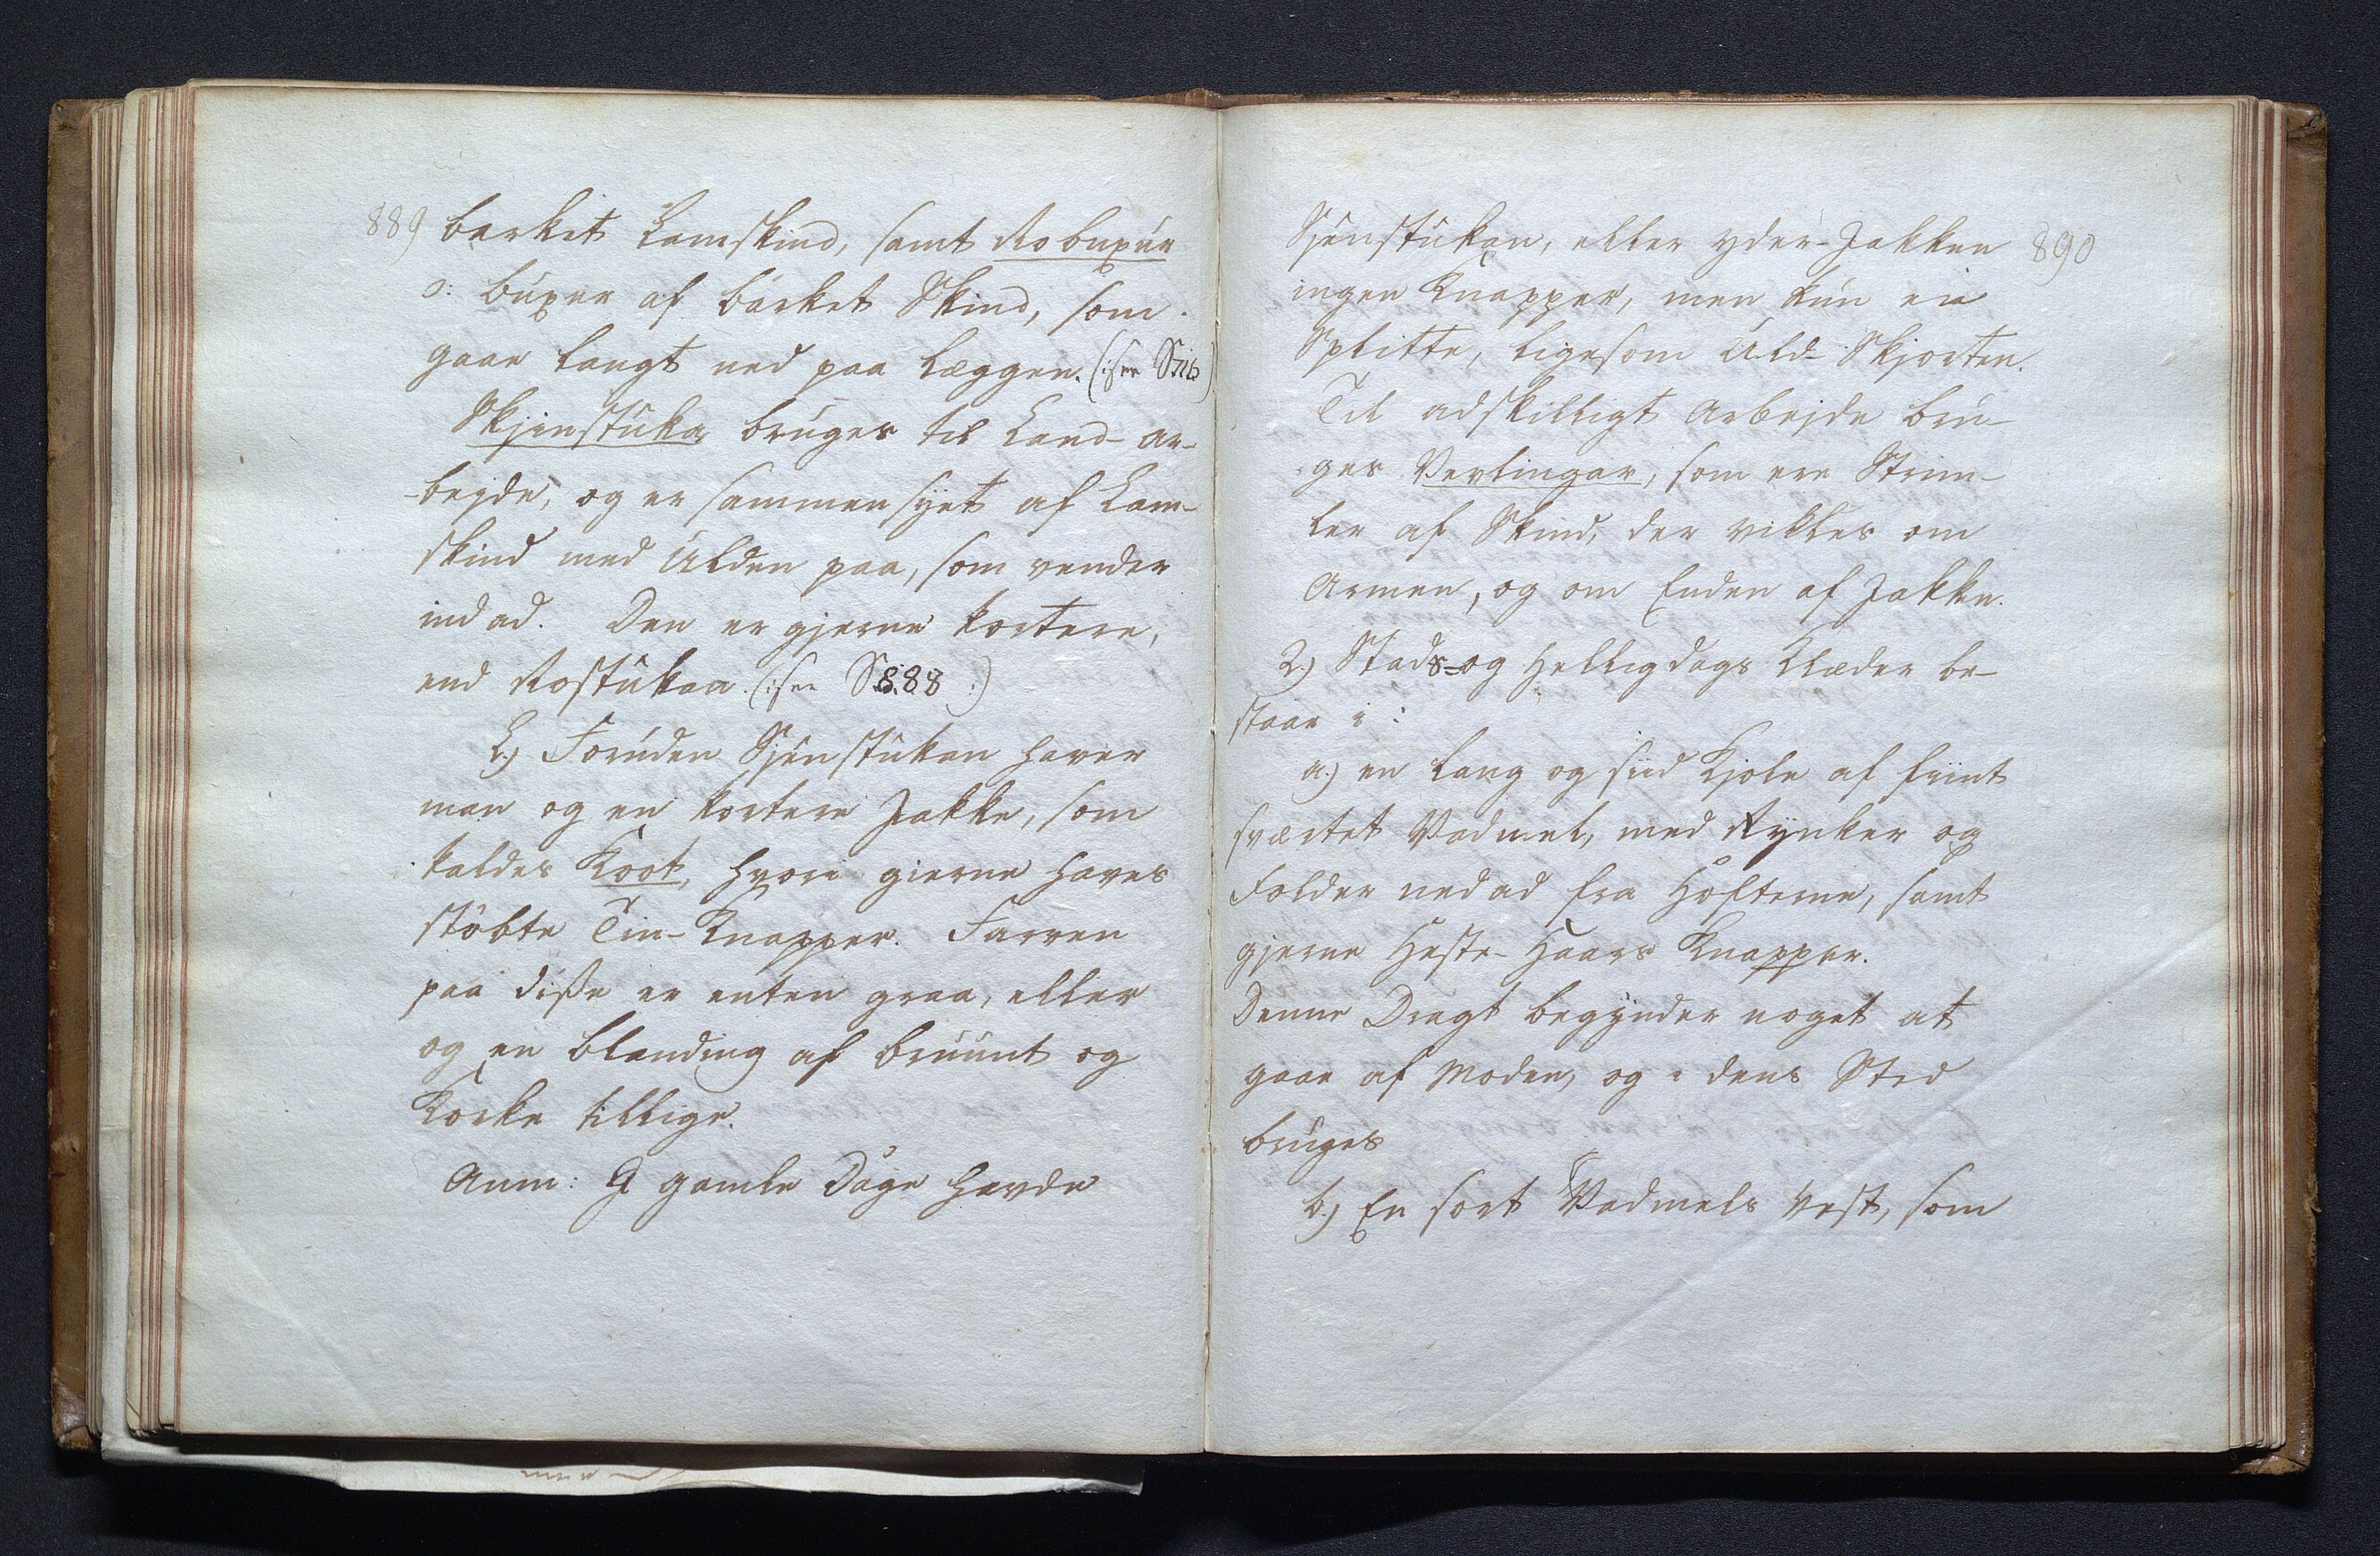 889
barket Lamskind, samt Robuxur
ɔ: Buxer af barket Skind, som
gaae langt ned paa Læggen. (: see S
Skjinstuka bruges til Land-ar-
-bejde, og er sammensyet af Lam-
skind med Ulden paa, som vender
indad. Den er gjerne kortere,
end Rostukan. (: see S 888 :)
L) Foruden Sjenstukan haver
man og en kortere Jakke, som
kaldes Koot, hvori gierne haves
støbte Tin-Knapper. Farven
paa diße er enten graa, eller
og en blanding af bruunt og
Korke tillige.
Anm: I gamle Dage havde
890
Sjenstukan, eller yder-Jakken
ingen Knapper, men kun en
Splitte, ligesom Uld-Skjorten.
Til adskilligt Arbejde bru-
ges Vevlingar, som ere Strim-
ler af Skind, der vikles om
Armen, og om Enden af Jakke.
2) Stads- og Helligdags Klæder be-
staae i:
a.) en lang og siid Kjole af fiint
sværtet Vadmel, med Rynker og
Folder nedad fra Hofterne, samt
gjerne Heste-Haars Knapper.
Denne Dragt begynder noget at
gaae af Moden, og i dens Sted
bruges
b.) En sort Vadmels Vest, som